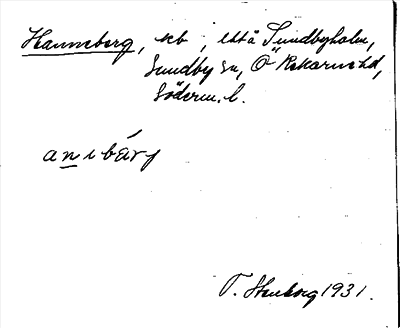 Hanneberg, stb ; lht å Sundbyholm,
Sundby sn, Ö Rekarne hd,
Söderm. l.
anibärj
T. Stenborg 1931.